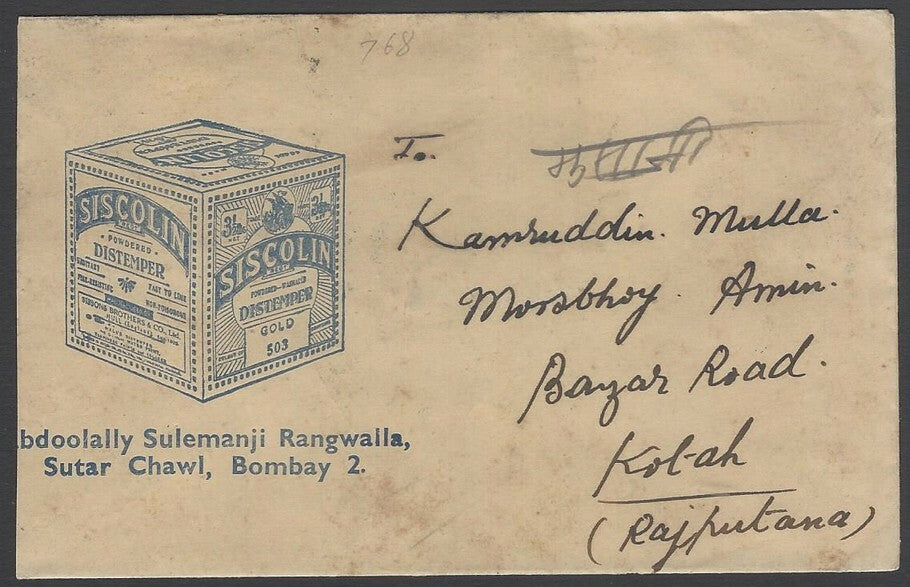 768
SISCOLIN
POWDERED
DISTEMPER
SANITARY
FIRE-RESISTING
EASY TO LIME
NON-POISONOUS
SISSONS BROTHERS & CO., Ltd.
HULL
3½
NET
3½
SISCOLIN
DISTEMPER
GOLD
503
bdoolally Sulemanji Rangwalla,
Sutar Chawl, Bombay 2.
To.
Kamruddin. Mulla.
Morsbhoy. Amin.
Bazar Road.
Kotah
(Rajputana)